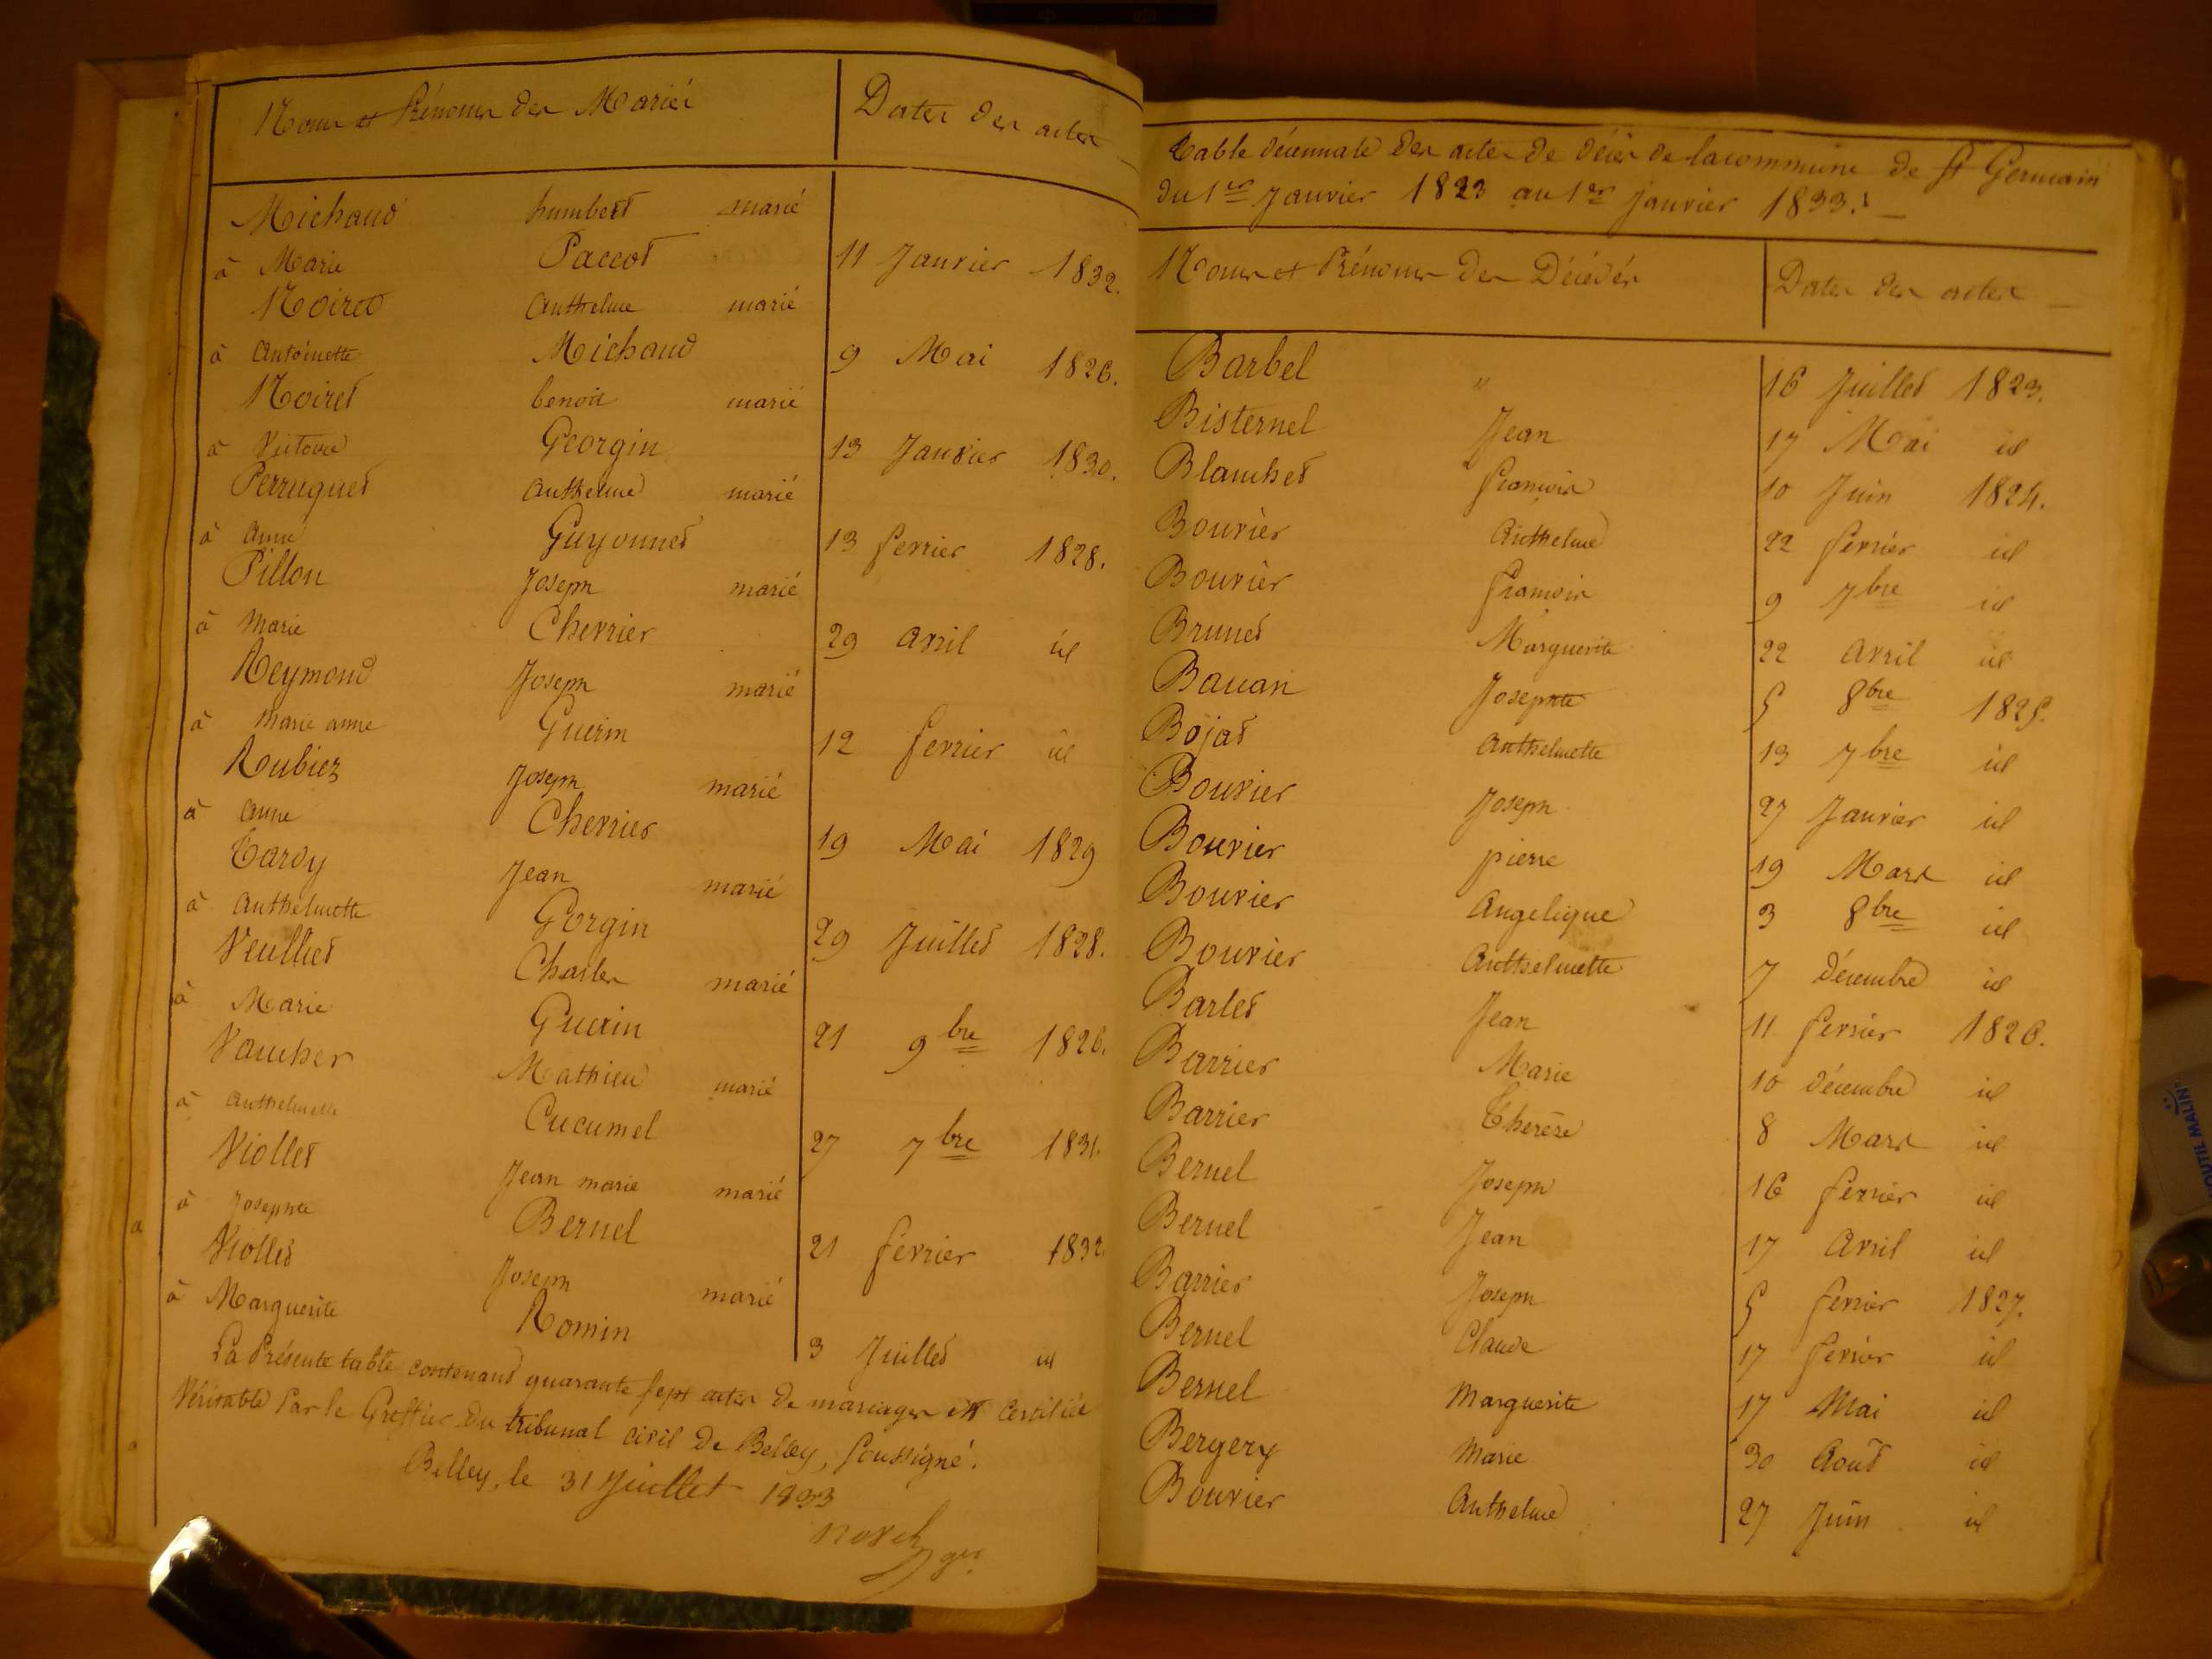 Noms et Prénoms des Mariés Dates des actes
Michaud humbert marié
à Marie Paccot 11 Janvier 1832.
Noiret Anthelme marié
à Antoinette Michaud 9 Mai 1826.
Noiret benoit marié
à Victoire Georgin 13 Janvier 1830.
Perruquet Anthelme marié
à Anne Guyonnet 13 fevrier 1828.
Pillon Joseph marié
à Marie Chevrier 29 avril id
Reymond Joseph marié
à Marie anne Guerin 12 fevrier id
Rubiez Joseph marié
à Anne Chevrier 19 Mai 1829
Tardy Jean marié
à Anthelmette Gorgin 29 Juillet 1828.
Veulliet Charles marié
à Marie Guerin 21 9bre 1826.
Vaucher Mathieu marié
à Anthelmette Cucumel 27 7bre 1831.
Viollet Jean marie marié
à Josephte Bernel 21 fevrier 1832.
Viollet Joseph marié
à Marguerite Romin 3 Juillet id
La Présente table contenant quarante sept actes de mariages est certifiée
Véritable Par le Greffier du tribunal civil de Belley, soussigné.
Belley, le 31 Juillet 1833
Table décennale des actes de décès de la commune de St Germain
du 1er Janvier 1823 au 1er janvier 1833.
Noms et Prénoms des Décédés Dates des actes
Barbel " 16 Juillet 1823.
Bisternel Jean 17 Mai id
Blanchet françois 10 Juin 1824.
Bouvier Anthelme 22 fevrier id
Bouvier françois 9 7bre id
Brunet Marguerite 22 avril id
Bavan Josephte 5 8bre 1825.
Bojat Anthelmette 13 7bre id
Bouvier Joseph 27 Janvier id
Bouvier pierre 19 Mars id
Bouvier Angelique 3 8bre id
Bouvier Anthelmette 7 décembre id
Barlet Jean 11 fevrier 1826.
Barrier Marie 10 décembre id
Barrier Therèse 8 Mars id
Bernel Joseph 16 fevrier id
Bernel Jean 17 Avril id
Barrier Joseph 5 fevrier 1827.
Bernel Claude 17 fevrier id
Bernel Marguerite 17 Mai id
Bergery Marie 30 Août id
Bouvier Anthelme 27 Juin id